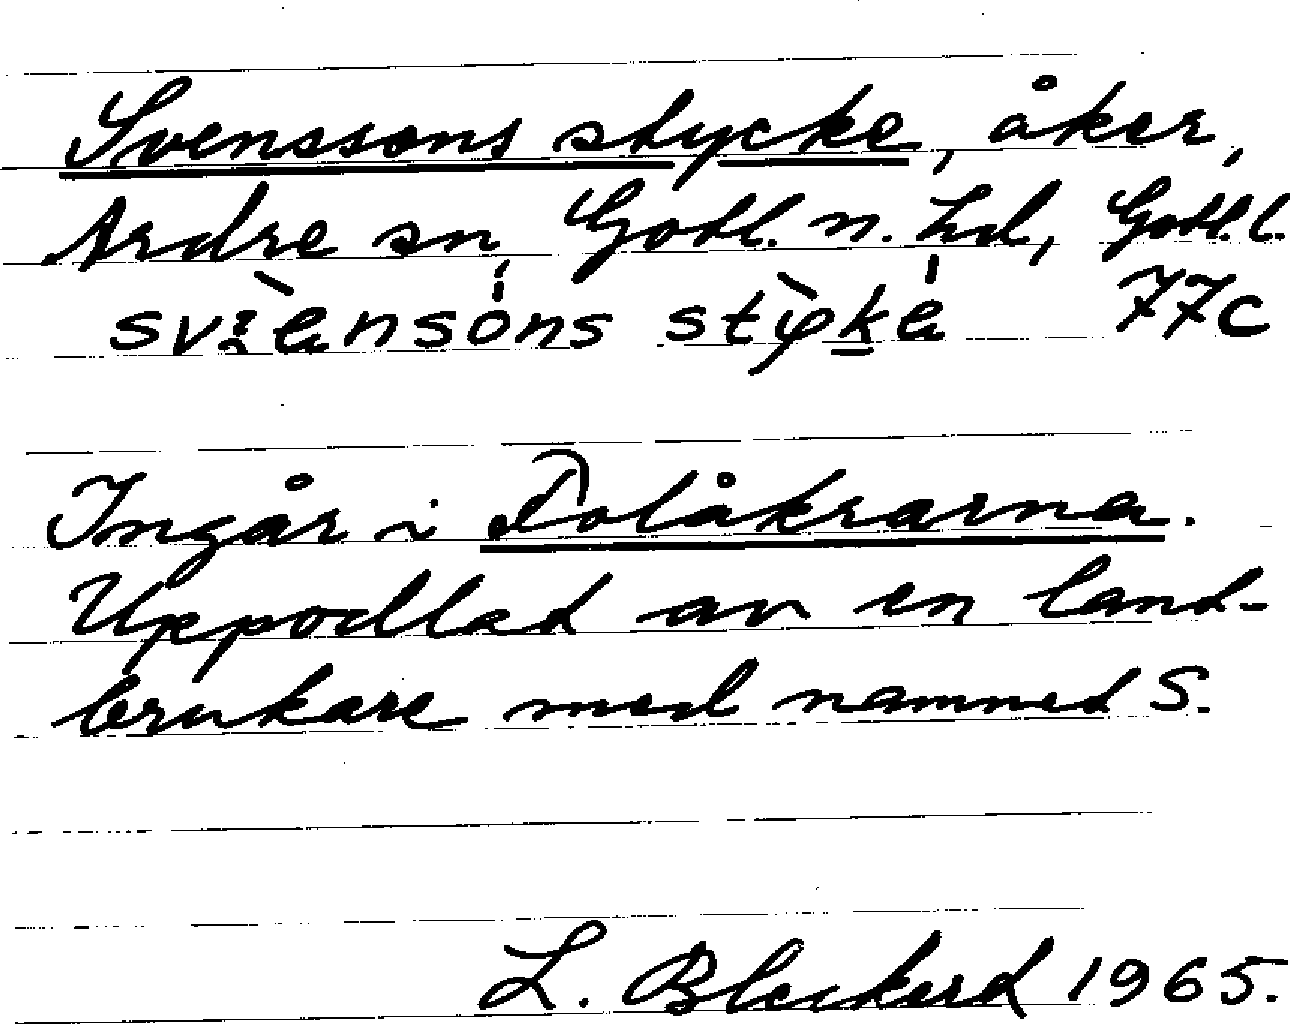 Svenssons stycke, åker,
Ardre sn, Gotl. n. hd, Gotl. l.
stỳkà 77c
Ingår i Tolåkrarna.
Uppodlad av en land-
brukare med namned S.
L. Bleckerd 1965.